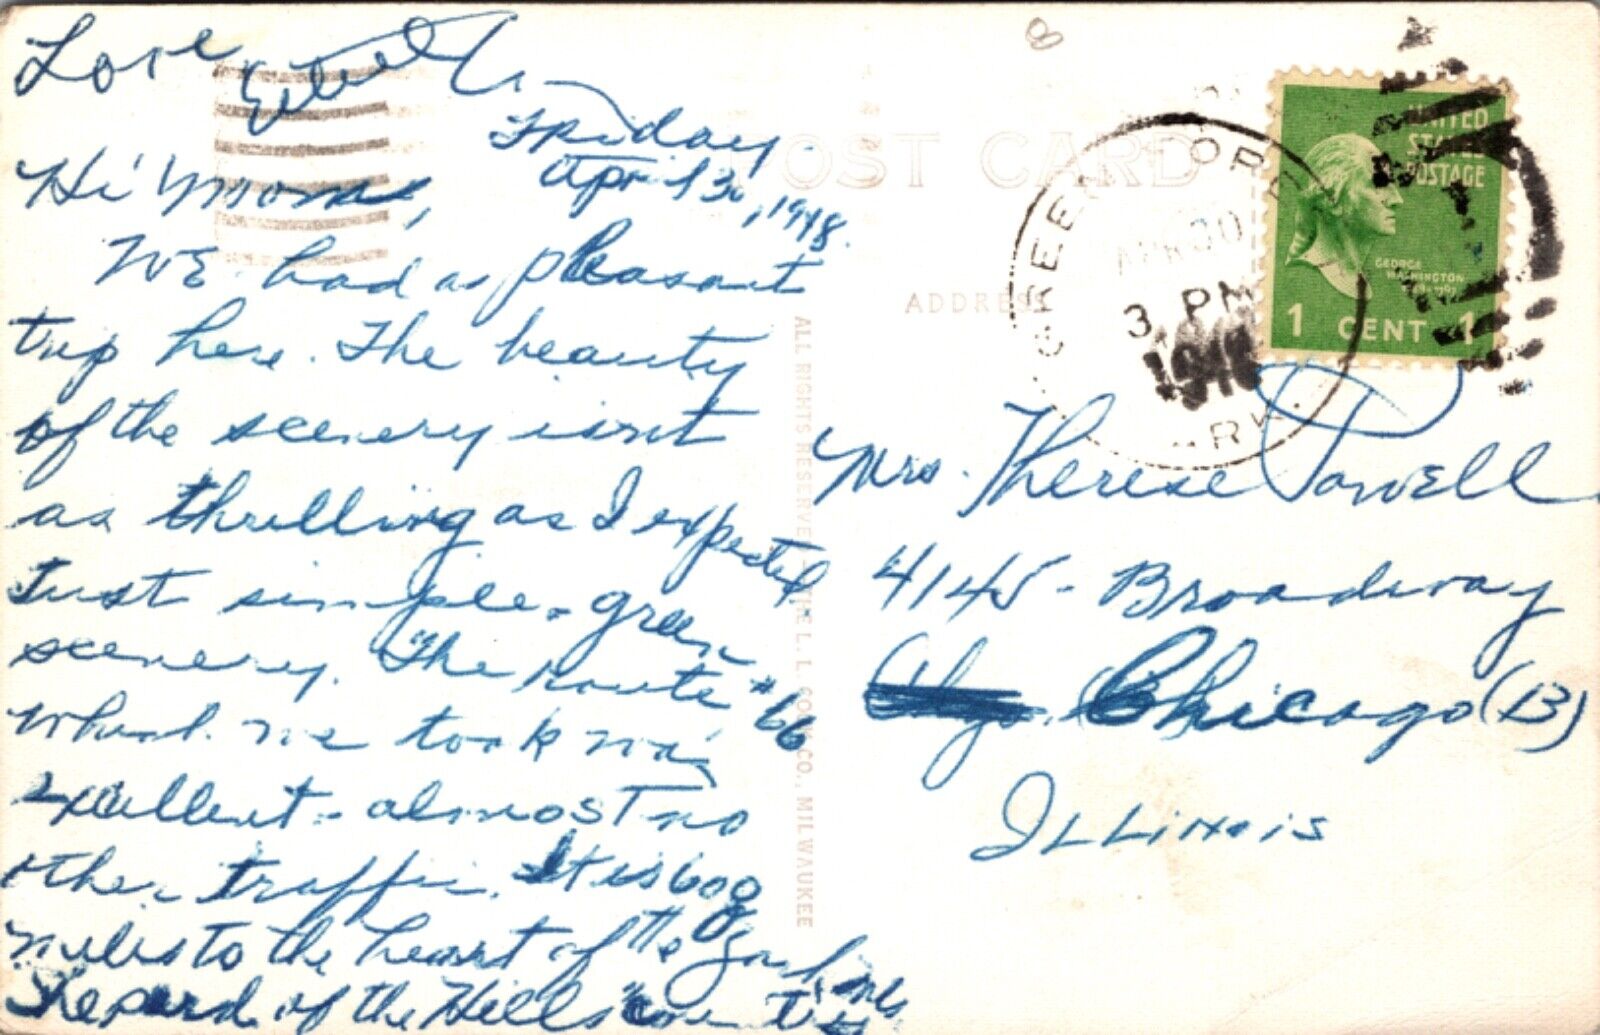 Love
Friday.
April 30, 1948.
Hi' Moms,
WE had as pleasant
trip here. The beauty
of the scenery isnt
as thrilling as I expected.
Just simple - green
scenery. The route #66
which we took was
excellent - almost no
other traffic. It is 600
miles to the heart of the Ozark Mts
"Shepard of the Hills" country
POST CARD
ADDRESS
ALL RIGHTS RESERVED - THE L. L. COOK CO., MILWAUKEE
GREEN FOREST
APR 30
3 PM
1948
ARK.
UNITED
STATES
POSTAGE
GEORGE
WASHINGTON
1 CENT 1
Mrs. Therese Powell
4145 - Broadway
Chicago (13)
ILLinois
8